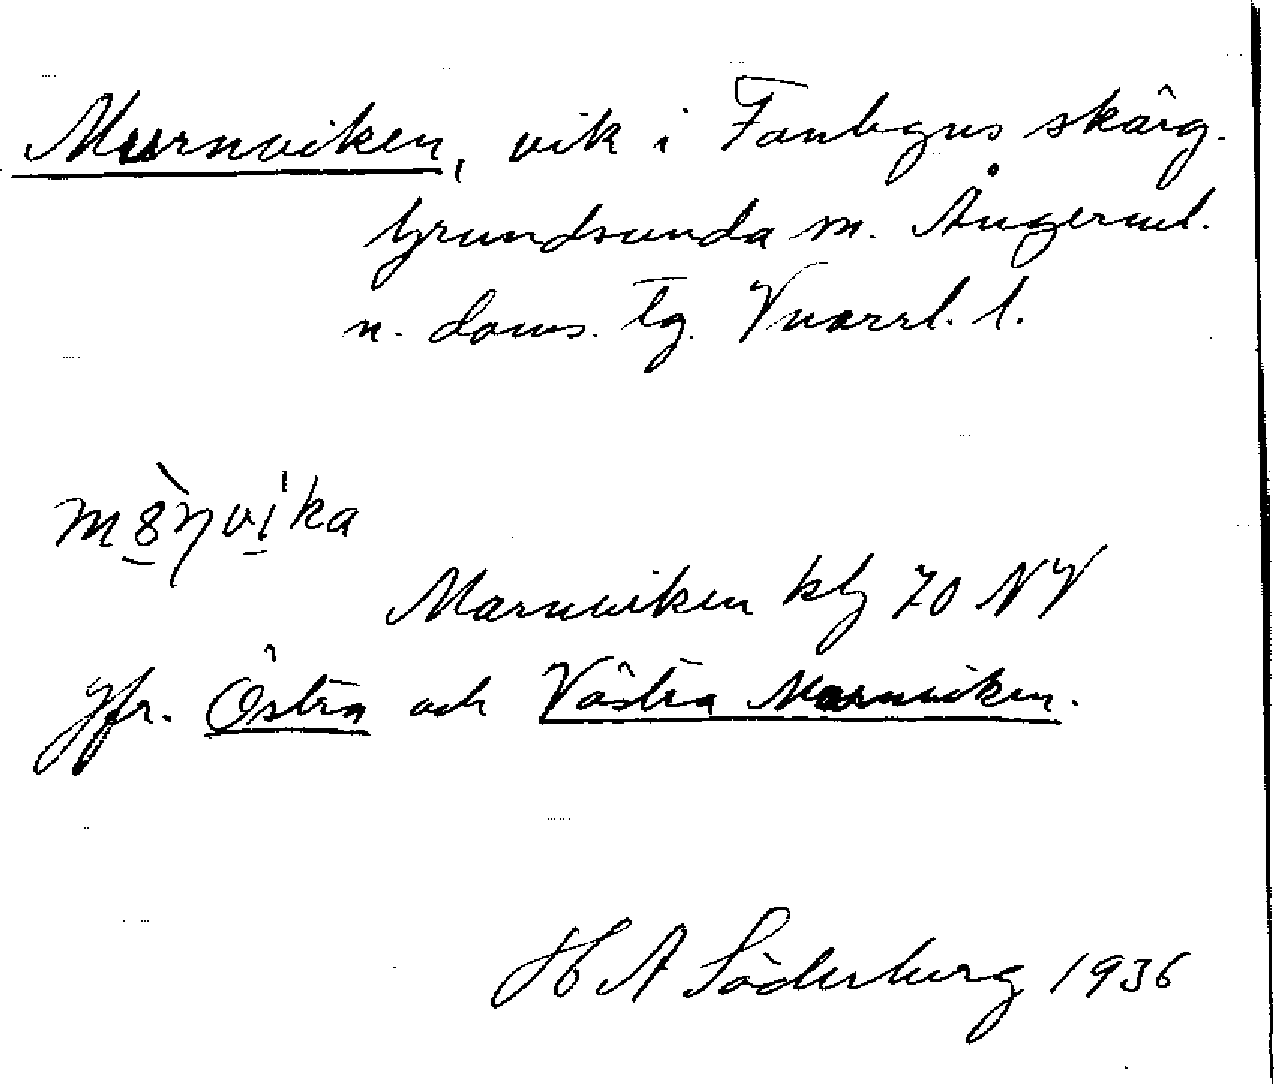 Murnviken, vik i Fanbyns skärg.
Grundsunda sn. Ångerml.
n. doms. tg. Vnorrl. l.
m8̀ɳvi̍ka
Marnviken kbl 70 NV
Jfr. Östra och Västra Marnviken.
H A Söderberg 1936